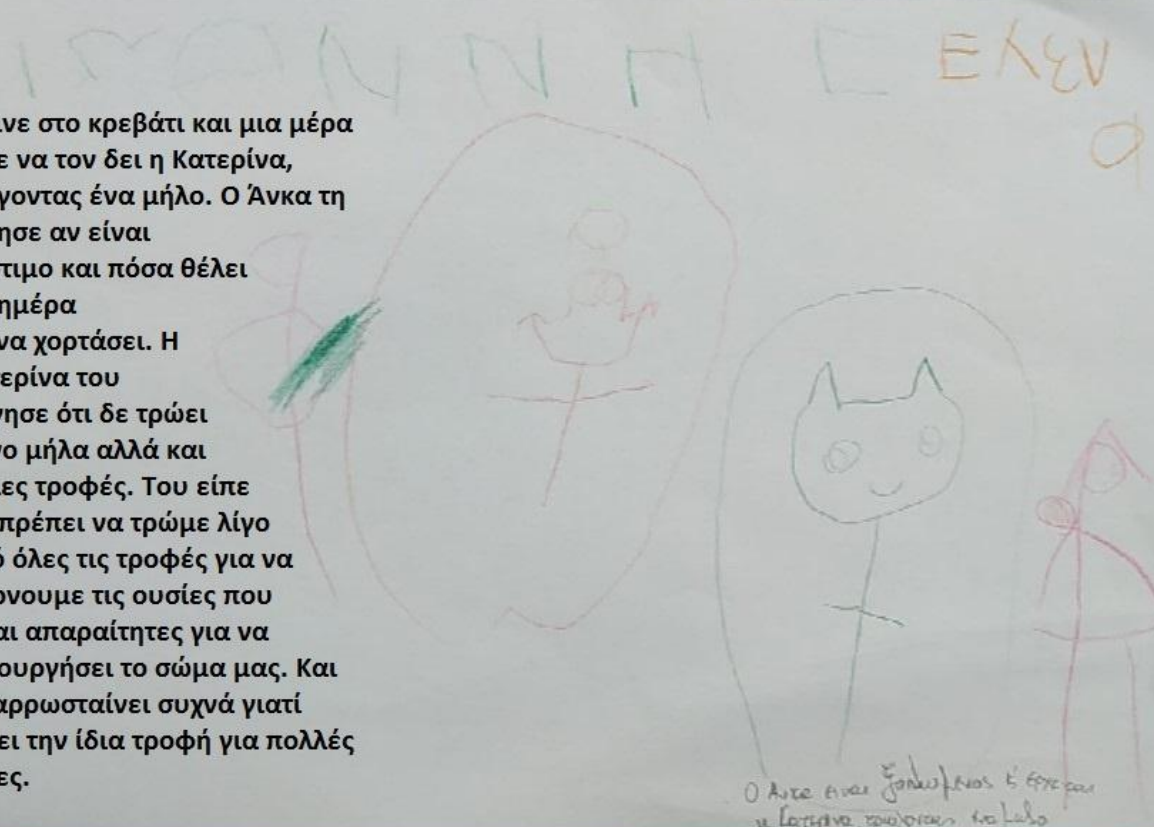 ΙΩΑΝΝΗΣ
ΕΛΕΝ
α
ινε στο κρεβάτι και μια μέρα
ε να τον δει η Κατερίνα,
γοντας ένα μήλο. Ο Άνκα τη
ησε αν είναι
τιμο και πόσα θέλει
ημέρα
να χορτάσει. Η
ερίνα του
νησε ότι δε τρώει
νο μήλα αλλά και
λες τροφές. Του είπε
πρέπει να τρώμε λίγο
ό όλες τις τροφές για να
ρνουμε τις ουσίες που
αι απαραίτητες για να
ουργήσει το σώμα μας. Και
αρρωσταίνει συχνά γιατί
ει την ίδια τροφή για πολλές
ες.
Ο Άνκα είναι ξαπλωμένος κ' έρχεται
η Κατερίνα τρώγοντας ένα μήλο